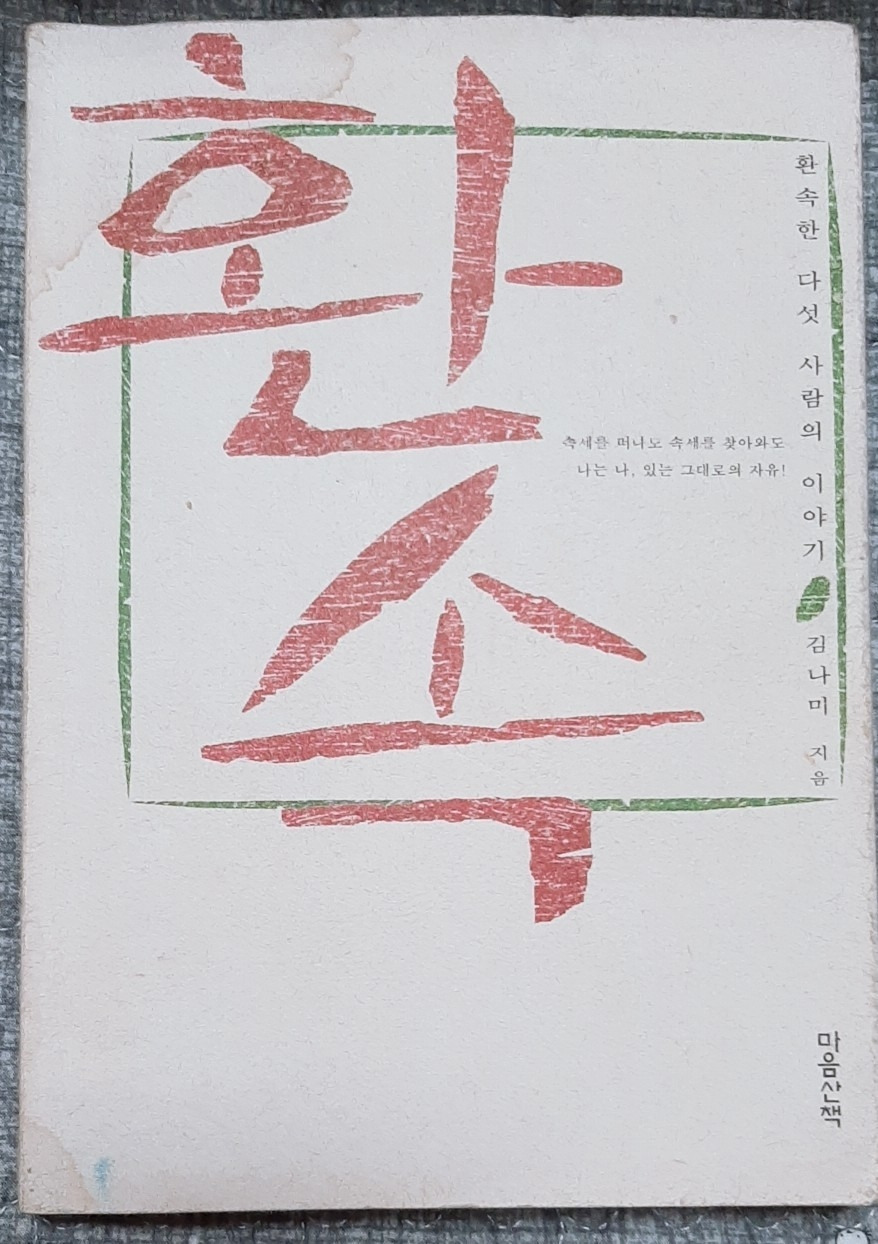 환속
환속한 다섯 사람의 이야기
김나미 지음
속세를 떠나도 속세를 찾아와도
나는 나, 있는 그대로의 자유!
마음산책